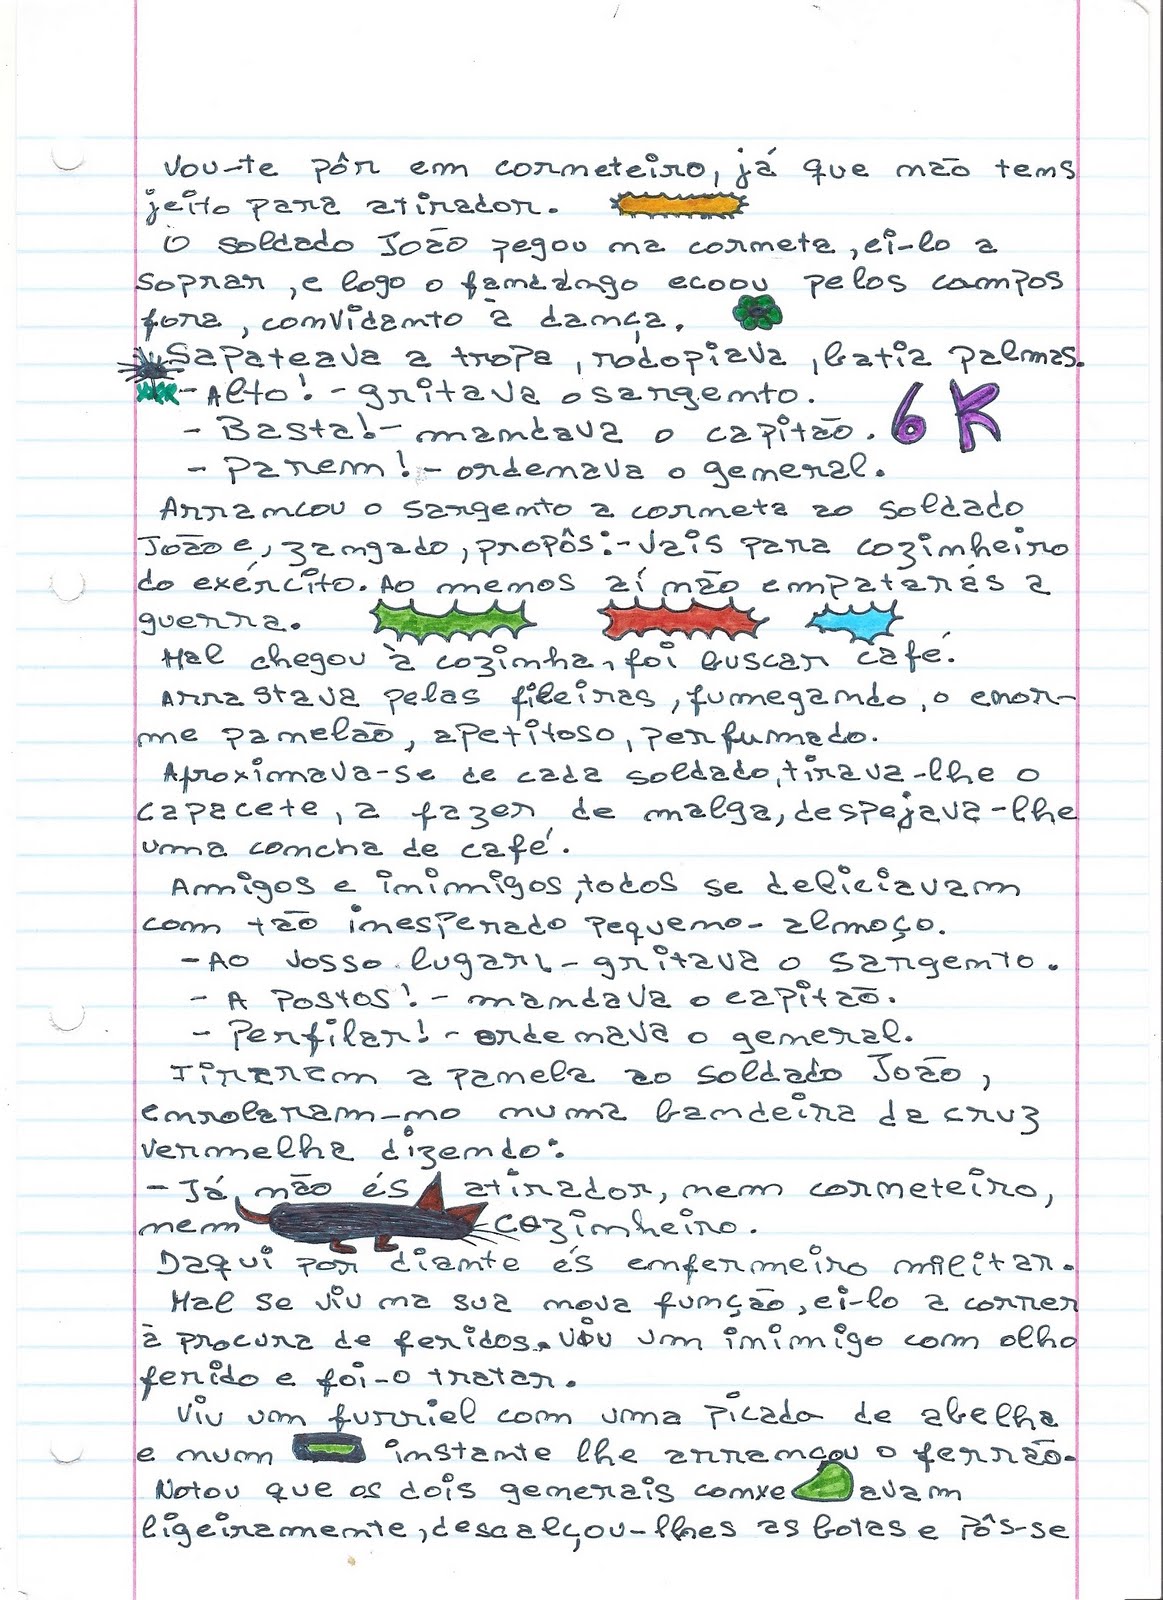 Vou-te pôr em corneteiro, já que não tens
jeito para atirador.
O soldado João pegou na corneta, ei-lo a
soprar, e logo o fandango ecoou pelos campos
fora, convidanto à dança.
Sapateava a tropa, rodopiava, batia palmas.
- Alto! - gritava o sargento.
6K
- Basta! - mandava o capitão.
- Parem! - ordenava o general.
Arrancou o sargento a corneta ao soldado
João e, zangado, propôs: - Vais para cozinheiro
do exército. Ao menos aí não empatarás a
guerra.
Mal chegou à cozinha, foi buscar café.
Arrastava pelas fileiras, fumegando, o enor-
me panelão, apetitoso, perfumado.
Aproximava-se de cada soldado, tirava-lhe o
capacete, a fazer de malga, despejava-lhe
uma concha de café.
Amigos e inimigos, todos se deliciavam
com tão inesperado pequeno-almoço.
- Ao vosso lugar! - gritava o sargento.
- A postos! - mandava o capitão.
- Perfilar! - ordenava o general.
Tiraram a panela ao soldado João,
enrolaram-no numa bandeira da cruz
vermelha dizendo:
- Já não és atirador, nem corneteiro,
nem cozinheiro.
Daqui por diante és enfermeiro militar.
Mal se viu na sua nova função, ei-lo a correr
à procura de feridos. Viu um inimigo com olho
ferido e foi-o tratar.
Viu um furriel com uma picada de abelha
e num instante lhe arrancou o ferrão.
Notou que os dois generais conxeavam
ligeiramente, descalçou-lhes as botas e pôs-se